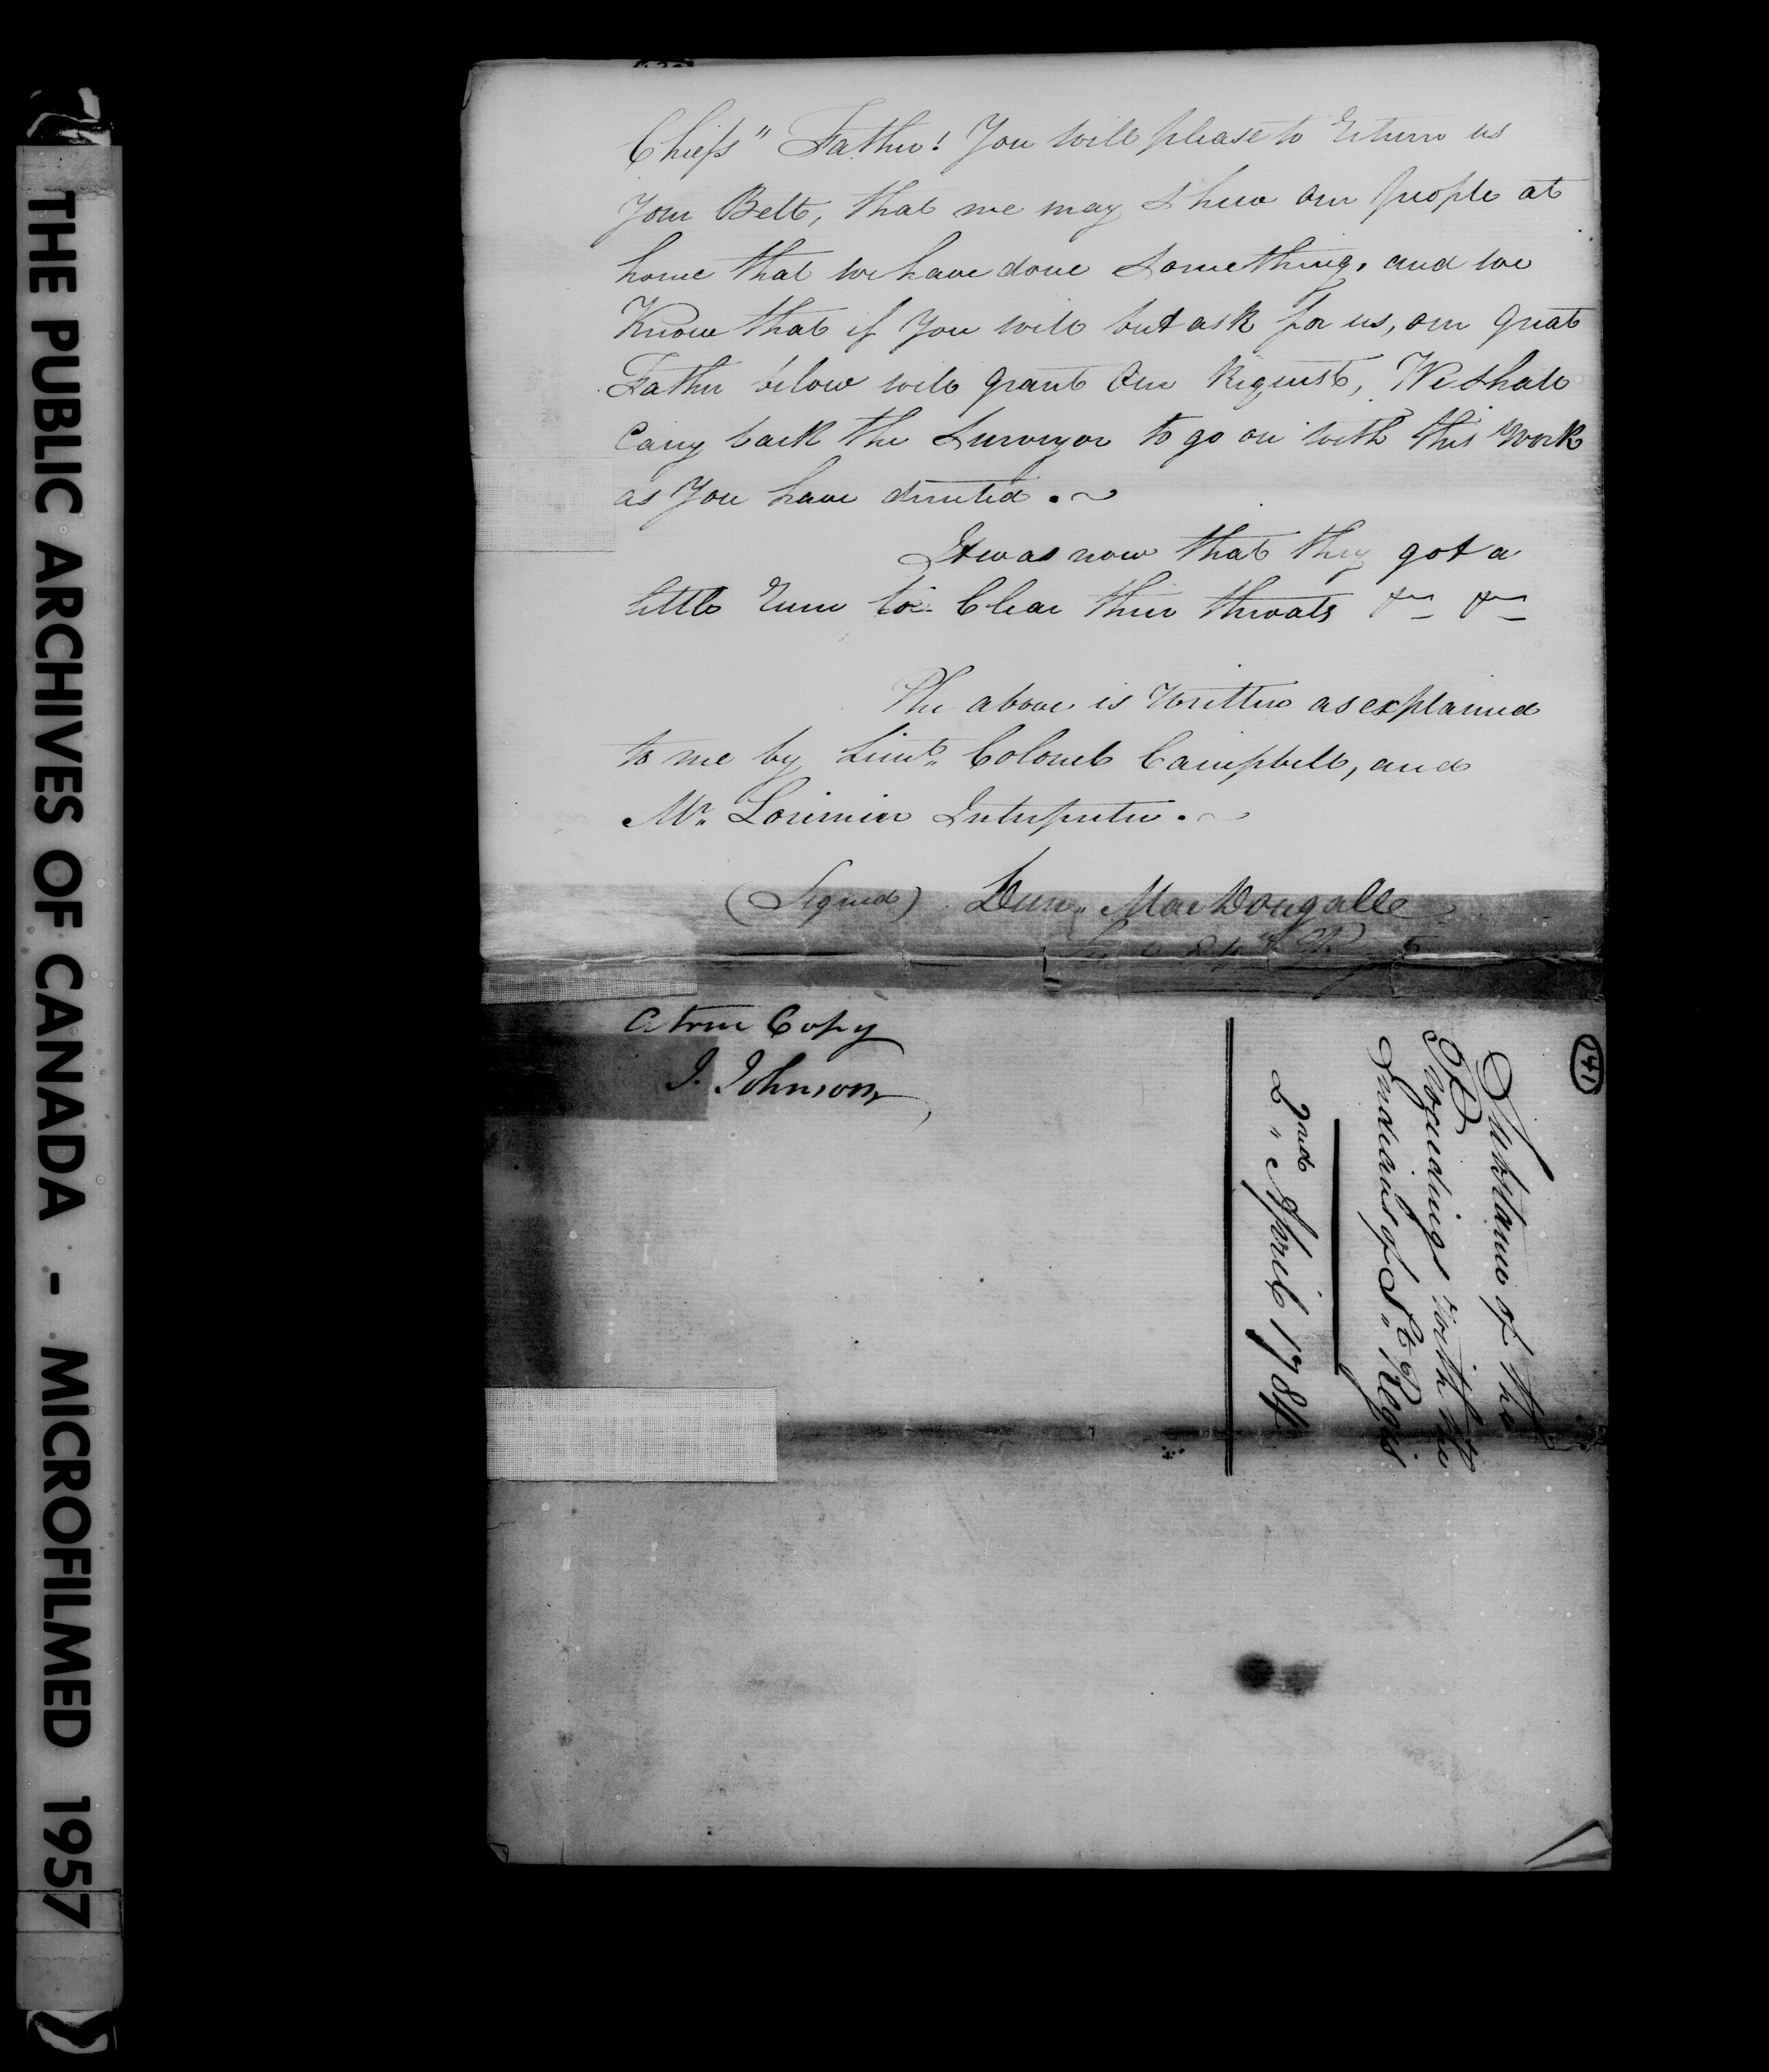 Chiefs" Father! You will please to return us
Your Belt, that we may Shew our people at
home that we have done Something, and we
Know that if You will but ask for us, our great
Father below will grant Our Request, We Shall
Carry back the Surveyor to go on with this Work
as You have directed.
It was now that they got a
little Rum to Clear their throats &c &c
The above is Written as explained
to me by Lieut. Colonel Campbell, and
Mr. Lorimier Interpreter.
(Signed) Dun. MacDougall
84th
A true Copy
J. Johnson
141
Substance of the
Proceedings with the
Indians of St. Regis
2nd April 1784
THE PUBLIC ARCHIVES OF CANADA - MICROFILMED 1957